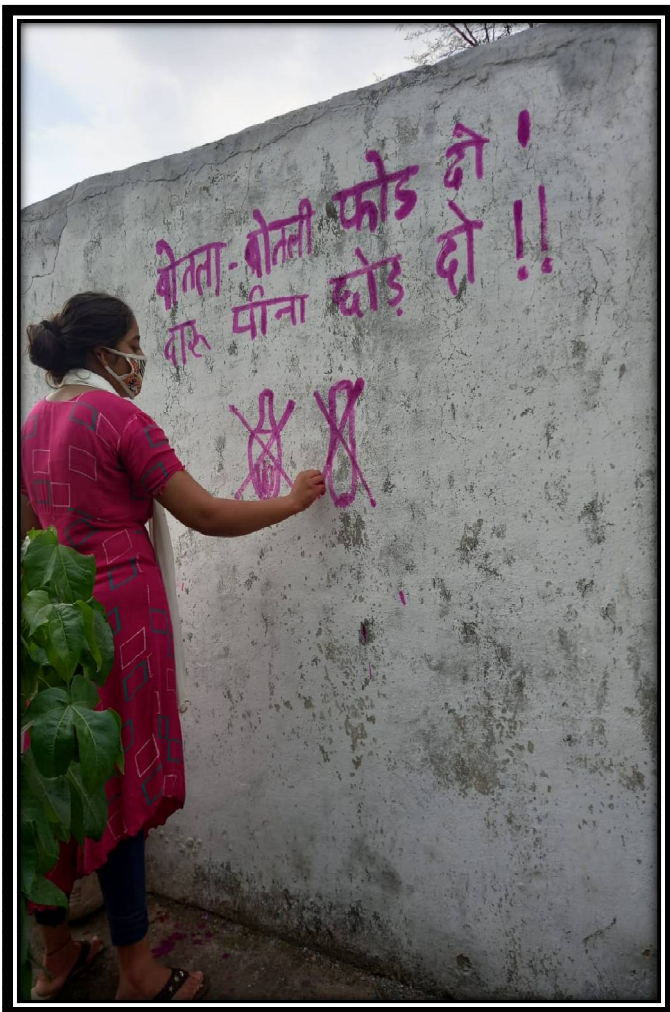 बोतला-बोतली फोड दो !
दारू पीना छोड़ दो !!